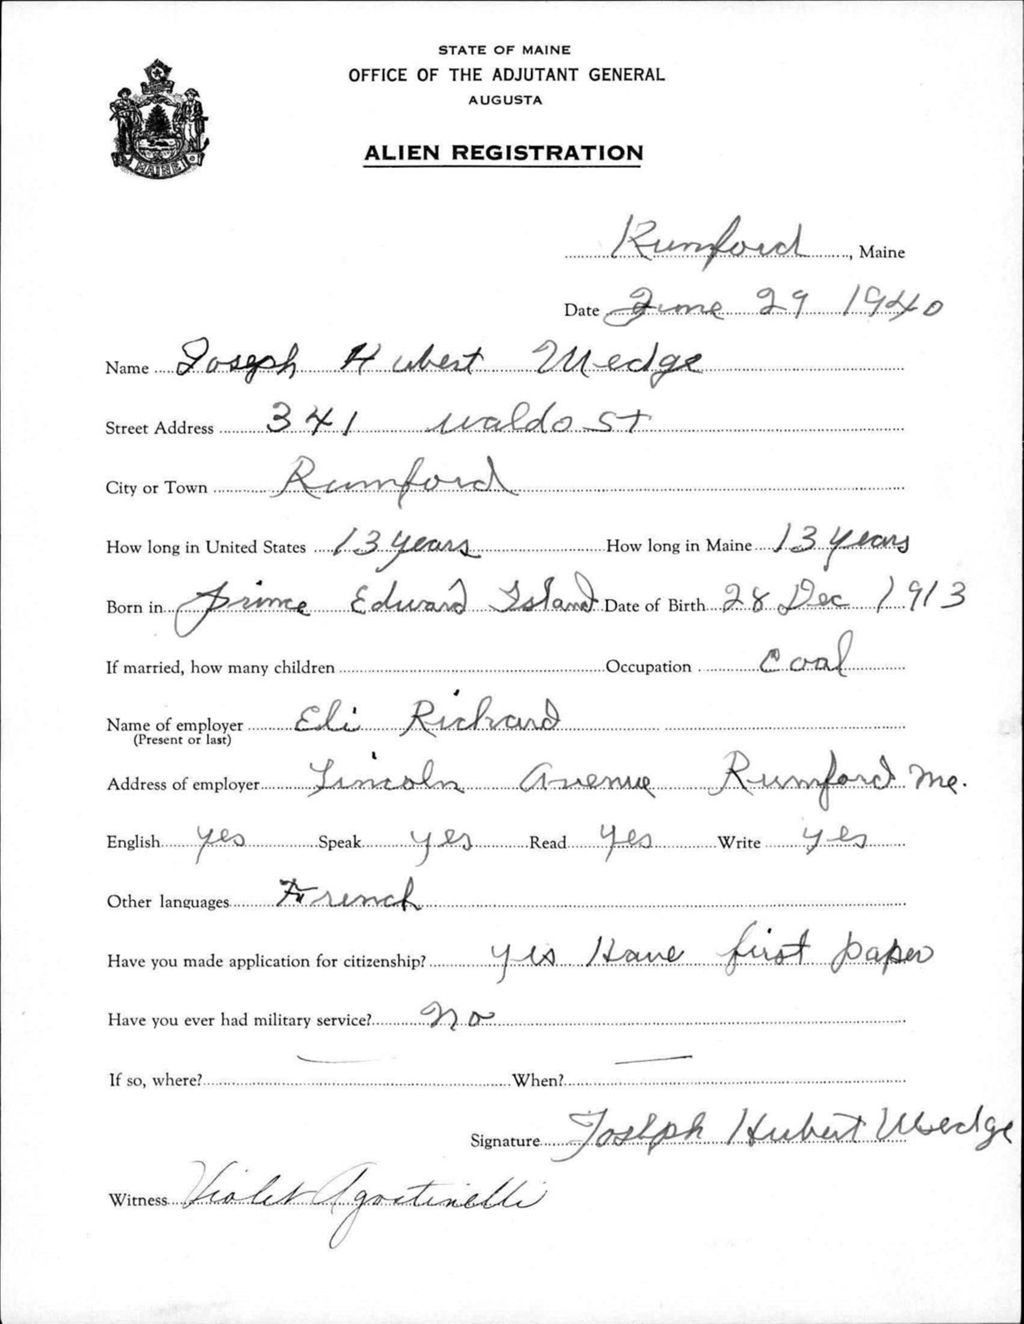 STATE OF MAINE
OFFICE OF THE ADJUTANT GENERAL
AUGUSTA
ALIEN REGISTRATION
MAINE
Rumford, Maine
Date June 29 1940
Name Joseph Hubert Wedge
Street Address 341 Waldo St
City or Town Rumford
How long in United States 13 years How long in Maine 13 years
Born in Prince Edward Island Date of Birth 28 Dec 1913
If married, how many children Occupation Coal
Name of employer Eli Richard
(Present or last)
Address of employer Lincoln Avenue Rumford Me.
English yes Speak yes Read yes Write yes
Other languages French
Have you made application for citizenship? yes Have first paper
Have you ever had military service? No
If so, where? — When? —
Signature Joseph Hubert Wedge
Witness Violet Agostinelli